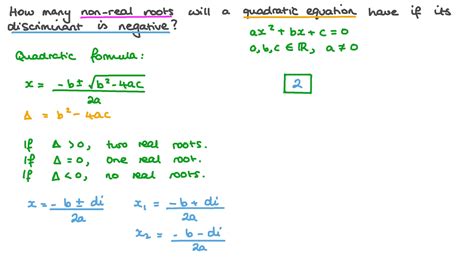 How many non-real roots will a quadratic equation have if its
discriminant is negative?
ax² + bx + c = 0
a, b, c ∈ ℝ, a ≠ 0
Quadratic formula:
x = (-b ± √(b² - 4ac)) / 2a
Δ = b² - 4ac
2
If Δ > 0, two real roots.
If Δ = 0, one real root.
If Δ < 0, no real roots.
x = (-b ± di) / 2a
x₁ = (-b + di) / 2a
x₂ = (-b - di) / 2a